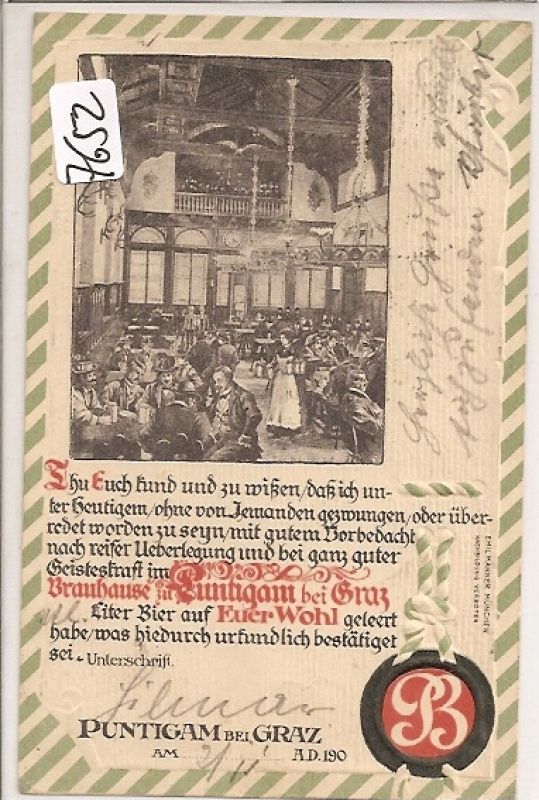 7652
Herzliche Grüße
Thu Euch kund und zu wißen/daß ich un-
ter Heutigem/ohne von Jemanden gezwungen/oder über-
redet worden zu seyn/mit gutem Vorbedacht
nach reifer Ueberlegung und bei ganz guter
Geisteskraft im
Brauhause zu Puntigam bei Graz
Liter Bier auf Euer Wohl geleert
habe/was hiedurch urkundlich bestätiget
sei. Unterschrift.
PUNTIGAM BEI GRAZ
AM A.D.190
EMIL MANNER MÜNCHEN
NACHBILDUNG VERBOTEN
PB